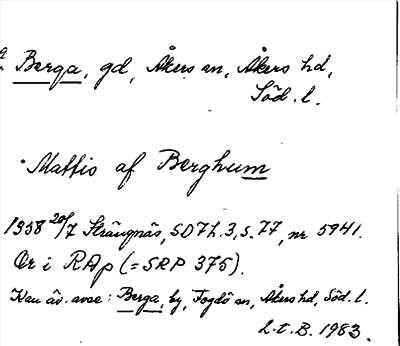 Berga, gd, Åkers sn, Åkers hd,
Söd. l.
Mattis af Berghum
1358 20/7 Strängnäs, SD 7 h. 3, s. 77, nr 5941.
Or i RAp (= SRP 375).
Kan äv. avse: Berga, by, Fogdö sn, Åkers hd, Söd. l.
L.t.B. 1983.